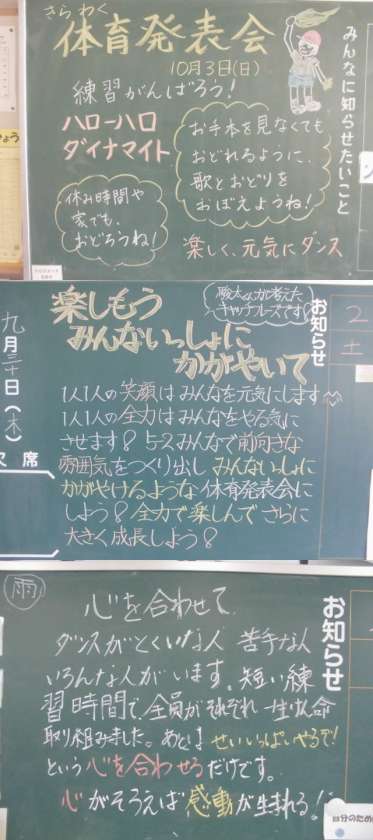 みんなに知らせたいこと
さらわく
体育発表会
10月3日(日)
練習がんばろう!
ハローハロ
ダイナマイト
お手本を見なくても
おどれるように、
歌とおどりを
おぼえようね!
休み時間や
家でも、
おどろうね!
楽しく、元気にダンス
お知らせ
2
土
九月三十日(木)
欠席
楽しもう
みんないっしょに
かがやいて
駿太くんが考えた
キャッチフレーズです
1人1人の笑顔はみんなを元気にします
1人1人の全力はみんなをやる気に
させます! 5-2みんなで前向きな
雰囲気をつくり出しみんないっしょに
かがやけるような体育発表会に
しよう! 全力で楽しんでさらに
大きく成長しよう!
お知らせ
雨
心を合わせて
ダンスがとくいな人 苦手な人
いろんな人がいます。短い練
習時間で、全員がそれぞれ一生けん命
取り組みました。あとは せいいっぱいやるぞ!
という心を合わせるだけです。
心がそろえば感動が生まれる!
自分のため